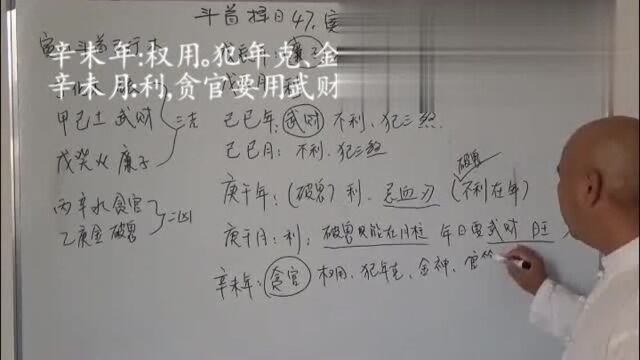 斗首择日47.
辛未年:权用。犯年克、金
辛未月:利,贪官要用武财
甲己土 武财
戊癸火 廉子
三吉
丙辛水贪官
乙庚金 破鬼
二凶
己巳年:武财 不利、犯三煞
己巳月:不利、犯三煞
破鬼
庚午年:(破鬼)利、忌血刃(不利在年)
庚午月:利:破鬼只能在月柱 年日要武财 旺
辛未年:贪官 权用、犯年克、金神、官